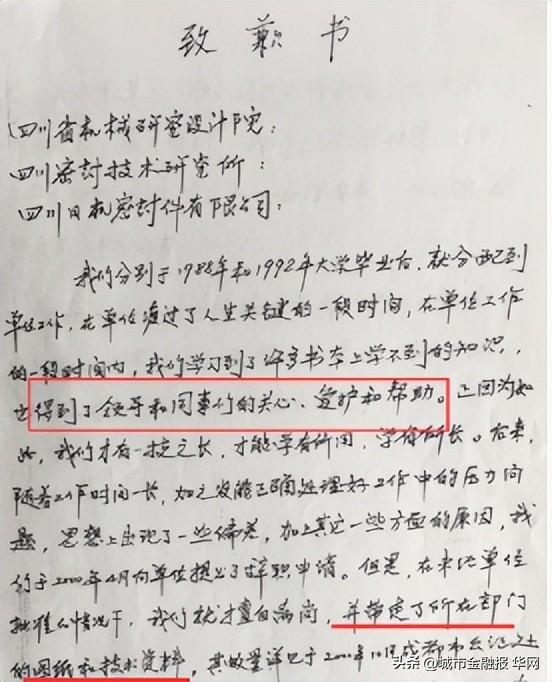 致歉书
四川省机械研究设计院:
四川密封技术研究所:
四川日机密封件有限公司:
我们分别于1988年和1992年大学毕业后,就分配到
单位工作,在单位渡过了人生关键的一段时间,在单位工作
的一段时间内,我们学习到了许多书本上学不到的知识,
也得到了领导和同事们的关心、爱护和帮助。正因为如
此,我们才有一技之长,才能学有所用,学有所长。后来,
随着工作时间长,加之没能正确处理好工作中的压力问
题,思想上出现了一些偏差,加上其它一些方面的原因,我
们于2000年4月向单位提出了辞职申请。但是,在未经单位
批准的情况下,我们就擅自离岗,并带走了所在部门
的图纸和技术资料,其数量详见于2000年10月成都市公证处
头条 @城市金融报 华网